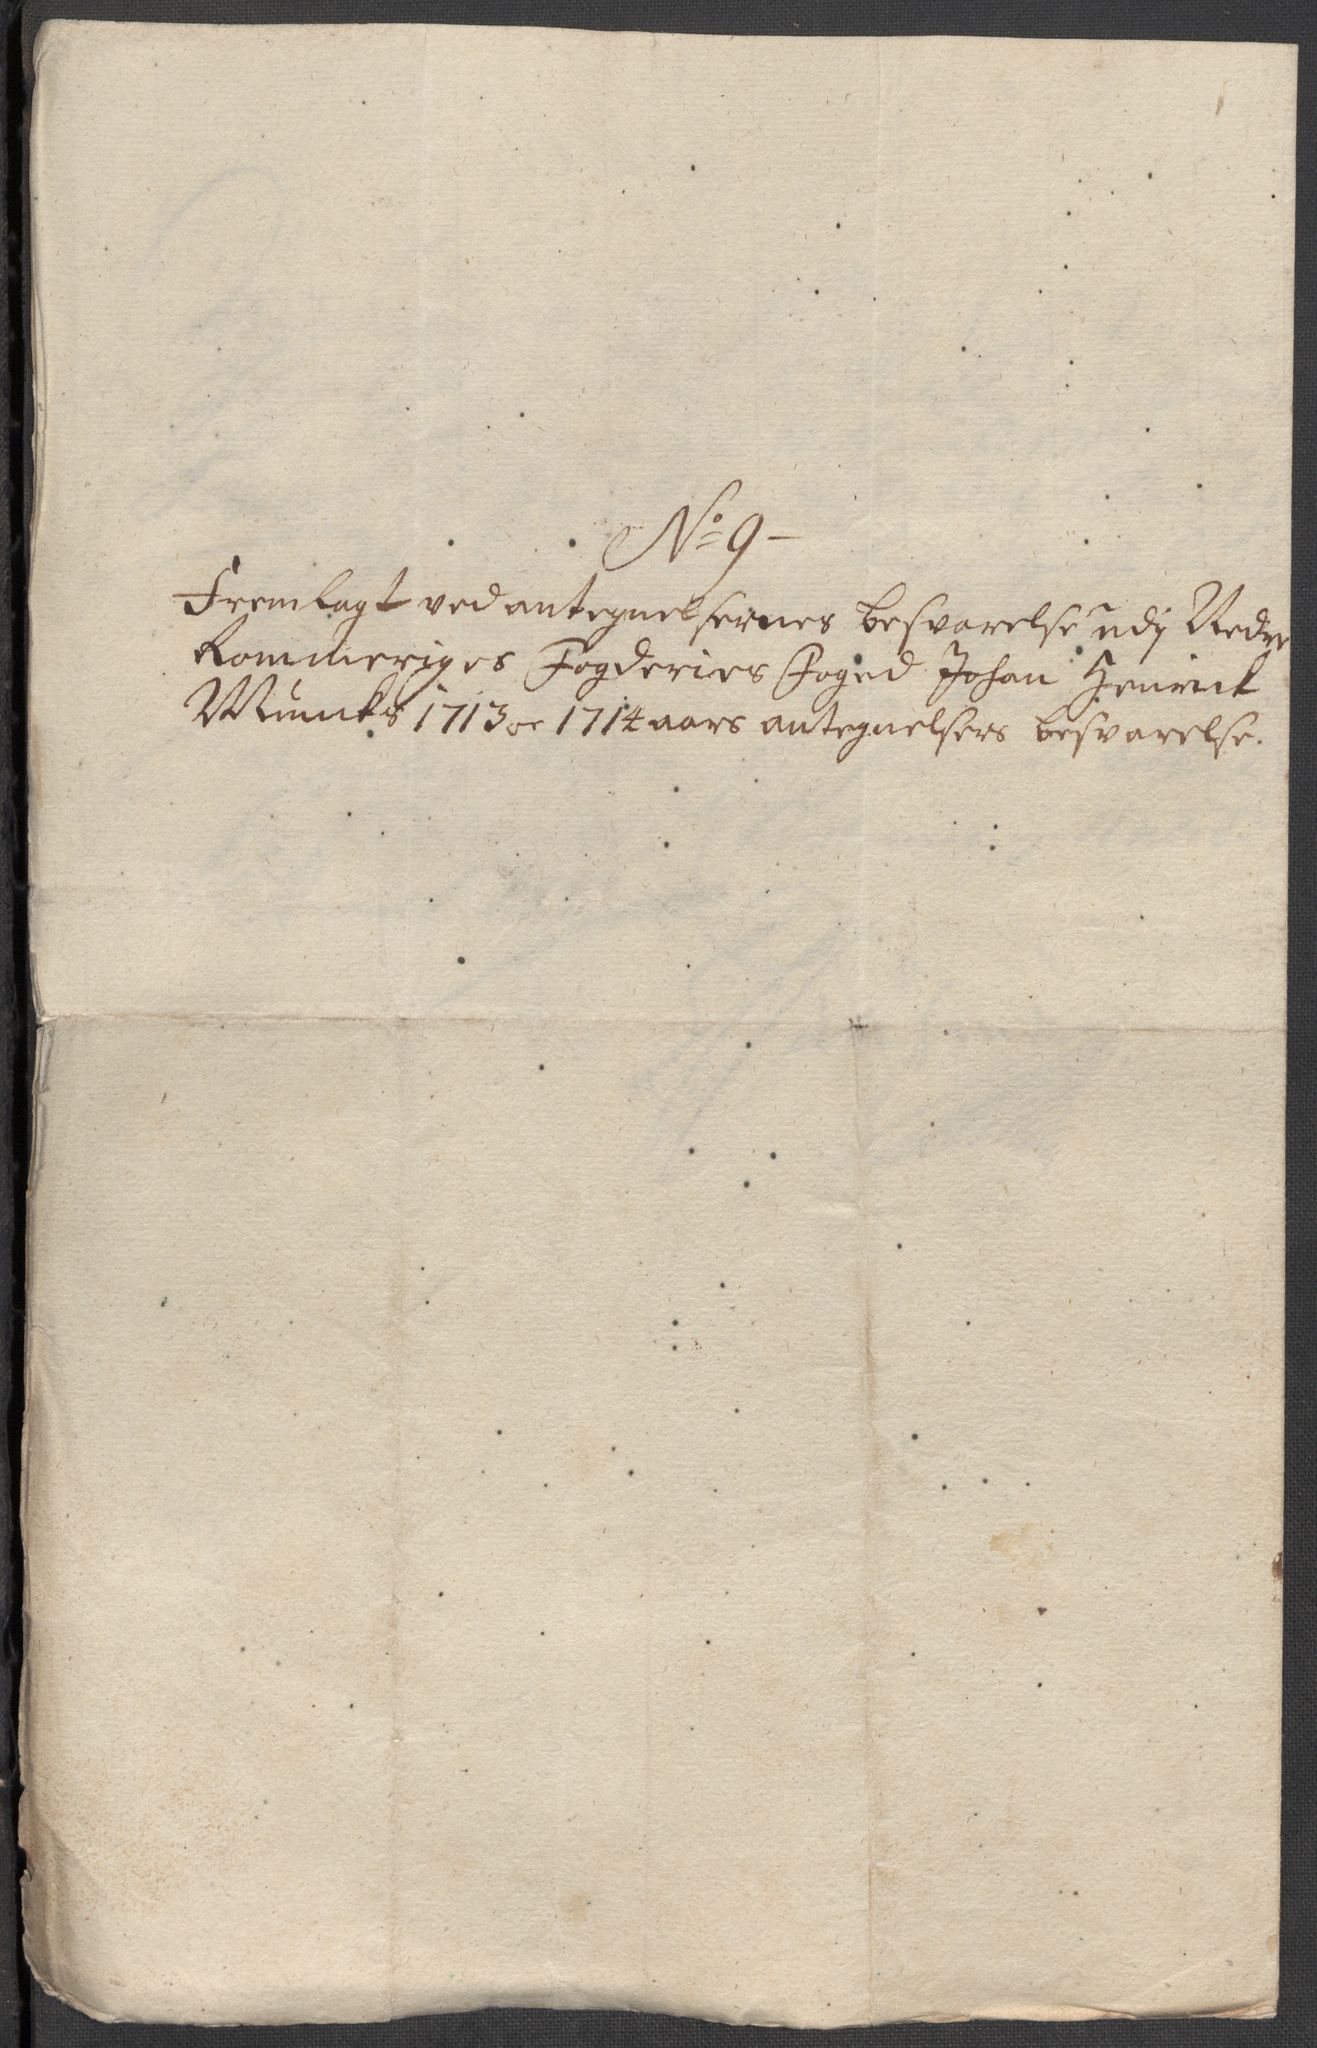 No 9 -
Fremlagt ved antegnelsernes besvarelse udj Nedre
Rommeriges Fogderies Foged Johan Henrick
Muncks 1713 oc 1714 aars antegnelsers besvarelse.